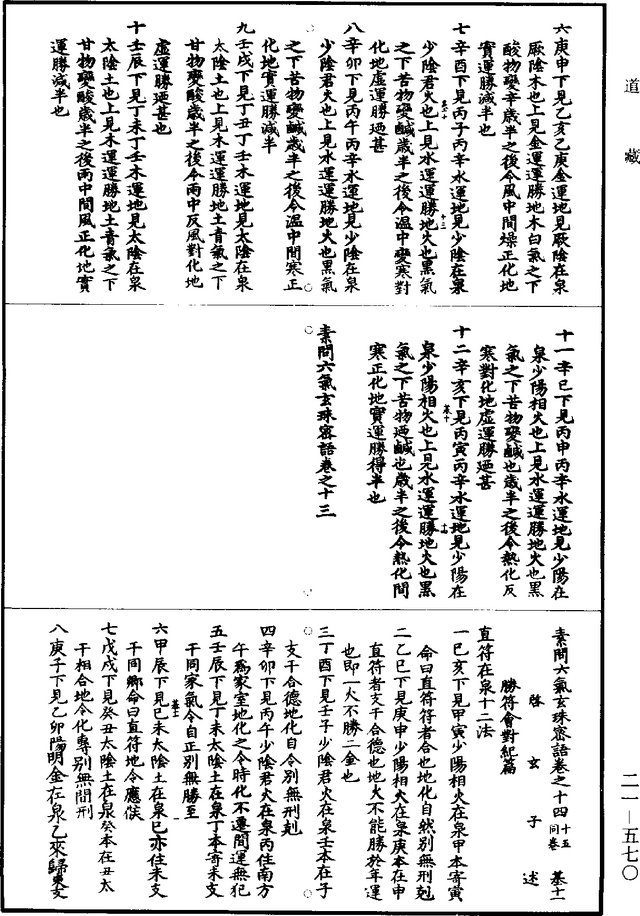 道藏
六庚申下見乙亥乙庚金運地見厥陰在泉
厥陰木也上見金運運勝地木白氣之下
酸物變辛歲半之後今風中間燥正化地
實運勝減半也
七辛酉下見丙子丙辛水運地見少陰在泉
少陰君火也上見水運運勝地火也黑氣
之下苦物變鹹歲半之後今溫中變寒對
化地虛運勝迺甚
八辛卯下見丙午丙辛水運地見少陰在泉
少陰君火也上見水運運勝地火也黑氣
之下苦物變鹹歲半之後今溫中間寒正
化地實運勝減半
九壬戌下見丁丑丁壬木運地見太陰在泉
太陰土也上見木運運勝地土青氣之下
甘物變酸歲半之後今雨中反風對化地
虛運勝迺甚也
十壬辰下見丁未丁壬木運地見太陰在泉
太陰土也上見木運運勝地土青氣之下
甘物變酸歲半之後雨中間風正化地實
運勝減半也
十一辛巳下見丙申丙辛水運地見少陽在
泉少陽相火也上見水運運勝地火也黑
氣之下苦物變鹹也歲半之後今熱化反
寒對化地虛運勝迺甚
十二辛亥下見丙寅丙辛水運地見少陽在
泉少陽相火也上見水運運勝地火也黑
氣之下苦物迺鹹也歲半之後今熱化間
寒正化地實運勝得半也
素問六氣玄珠密語卷之十三
素問六氣玄珠密語卷之十四 十五同卷 基十一
啓玄子述
勝符會對紀篇
直符在泉十二法
一己亥下見甲寅少陽相火在泉甲本寄寅
命曰直符符者合也地化自然別無刑剋
二乙巳下見庚申少陽相火在泉庚本在申
直符者支干合德也地火不能勝於年運
也即一火不勝二金也
三丁酉下見壬子少陰君火在泉壬本在子
支干合德地化自令別無刑剋
四辛卯下見丙午少陰君火在泉丙住南方
午爲家室地化之令時化不遷間運無犯
五壬辰下見丁未太陰土在泉丁本寄未支
干同家氣令自正別無勝至
六甲辰下見己未太陰土在泉已亦住未支
干同鄉命曰直符地令應候
七戊戌下見癸丑太陰土在泉癸本在丑太
干相合地令化專別無間刑
八庚子下見乙卯陽明金在泉乙來歸東支
二一—五七〇